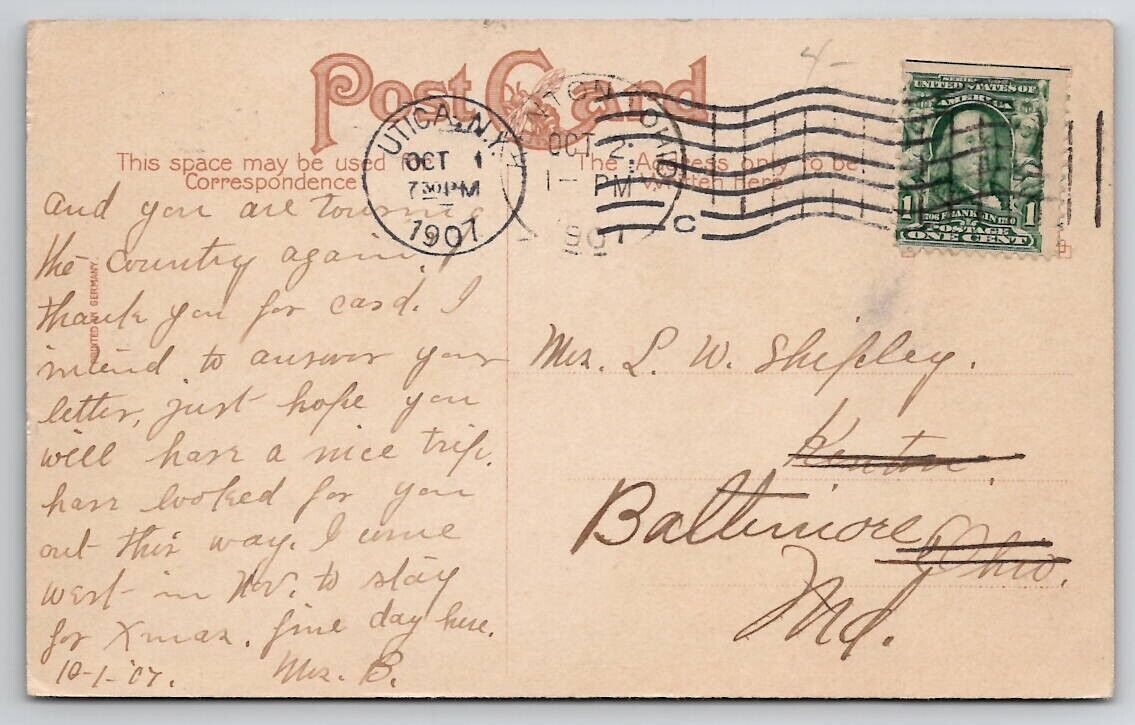 Post Card
This space may be used for
Correspondence
The Address only to be
Written Here
UTICA, N.Y.
OCT 1
730 PM
1907
KENTON, OHIO
OCT 2
1- PM
1907
C
4-
SERIES 1902
UNITED STATES OF
AMERICA
1 1
1706 FRANKLIN 1790
POSTAGE
ONE CENT
PRINTED IN GERMANY.
And you are touring
the country again,
thank you for card. I
intend to answer your
letter, just hope you
will have a nice trip.
have looked for you
out this way. I come
west in Nov. to stay
for Xmas. fine day here.
10-1-'07. Mrs. B.
Mrs. L. W. Shipley.
Kenton.
Baltimore Ohio.
Md.